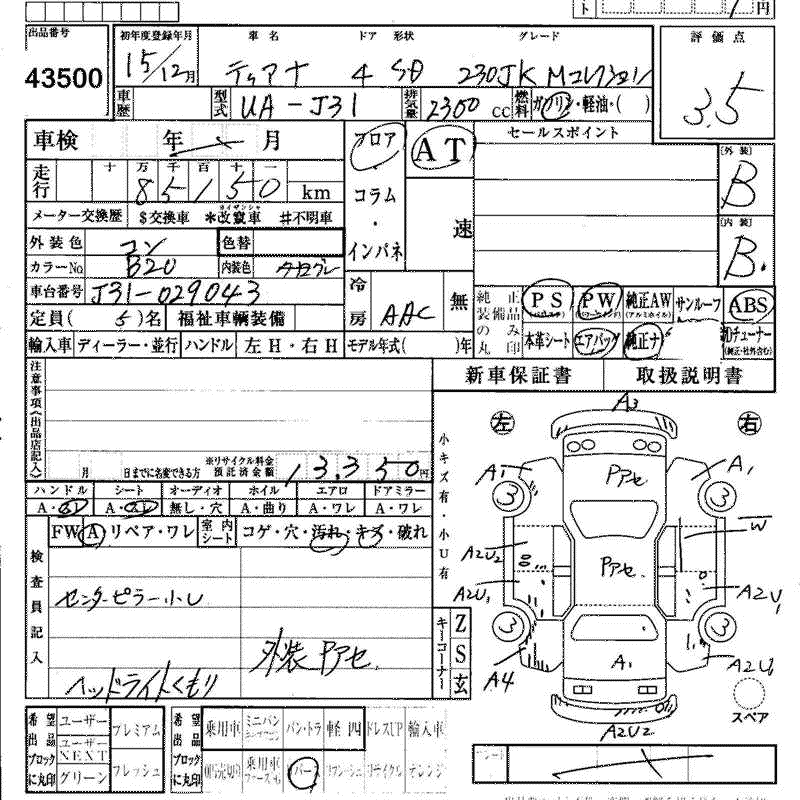 ト 円
出品番号 初年度登録年月 車名 ドア 形状 グレード 評価点
43500 15/12月 ティアナ 4 SD 230JK Mコレクション 3.5
車歴 型式 UA-J31 排気量 2300 CC 燃料 ガソリン・軽油・( )
車検 年 月 フロア AT セールスポイント [外装] B
走行 十 万 千 百 十 一
85150 km コラム
メーター交換歴 $交換車 *改竄車 #不明車 ・ 速 [内装] B.
外装色 コン 色替 インパネ
カラーNo. B20 内装色
車台番号 J31-029043 冷房 AAC 無 純正装備品のみ丸印 PS PW 純正AW サンルーフ ABS
(パワステ) (パワーウインドウ) (アルミホイル)
定員( 5 )名 福祉車輌装備 本革シート エアバッグ 純正ナビ 初Dチューナー
(純正・社外含む)
輸入車 ディーラー・並行 ハンドル 左H・右H モデル年式( )年
新車保証書 取扱説明書
注意事項(出品店記入)
月 日までに名変できる方 ※リサイクル料金預託済金額 13,350円
ハンドル シート オーディオ ホイル エアロ ドアミラー
A・スレ A・スレ 無し・穴 A・曲り A・ワレ A・ワレ
FW A リペア・ワレ 室内シート コゲ・穴・汚れ・キズ・破れ
検査員記入
センターピラー小U
外装Pアセ
ヘッドライトくもり
小キズ有・小U有
キーコーナー Z S 玄
左 A3 右
A1 Pアセ A1
3 3
W
A2U2 Pアセ.
A2U1 A2U1
3 3
A4 A1 A2U1
A2U2
スペア
希望出品ブロックに丸印 ユーザー プレミアム
ユーザーNEXT フレッシュ
グリーン
希望出品ブロックに丸印 乗用車 ミニバン バン・トラ 軽四 ドレスUP 輸入車
乗用車 リバース リフレッシュ リサイクル オレンジ